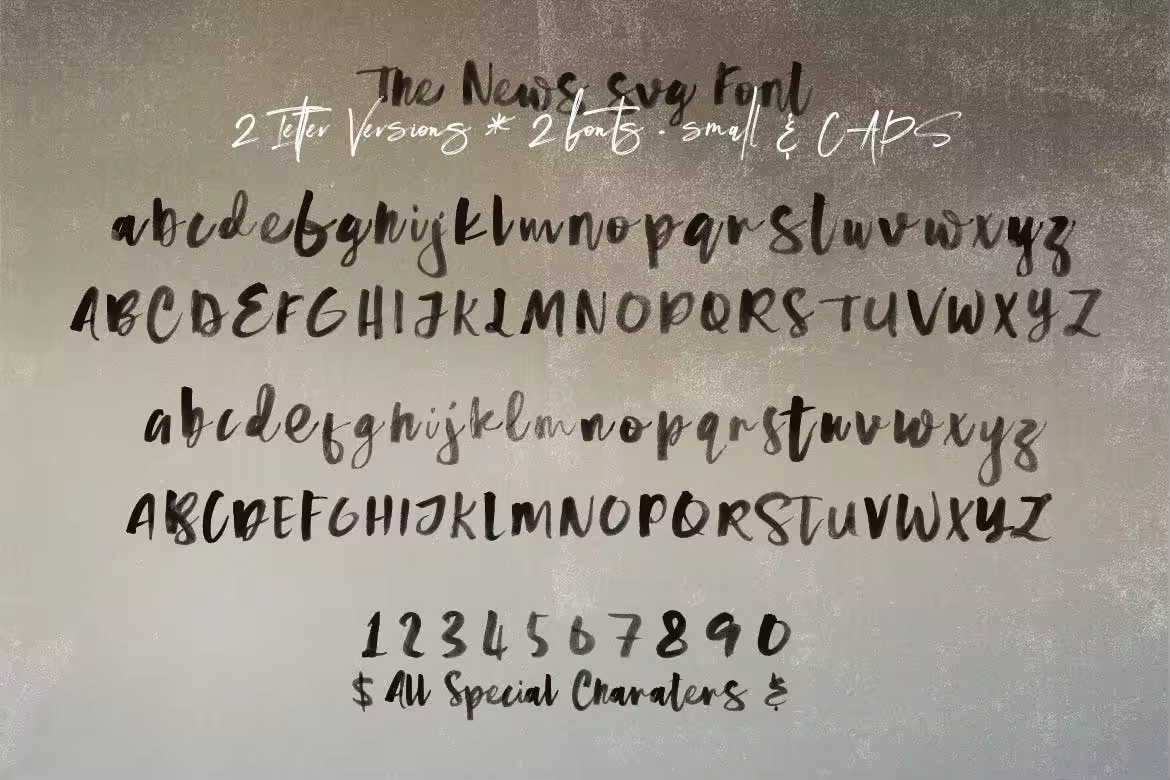 The News svg Font
2 letter Versions * 2 fonts . small & CAPS
abcdefghijklmnopqrstuvwxyz
ABCDEFGHIJKLMNOPQRSTUVWXYZ
abcdefghijklmnopqrstuvwxyz
ABCDEFGHIJKLMNOPQRSTUVWXYZ
1234567890
$ All Special Charaters &